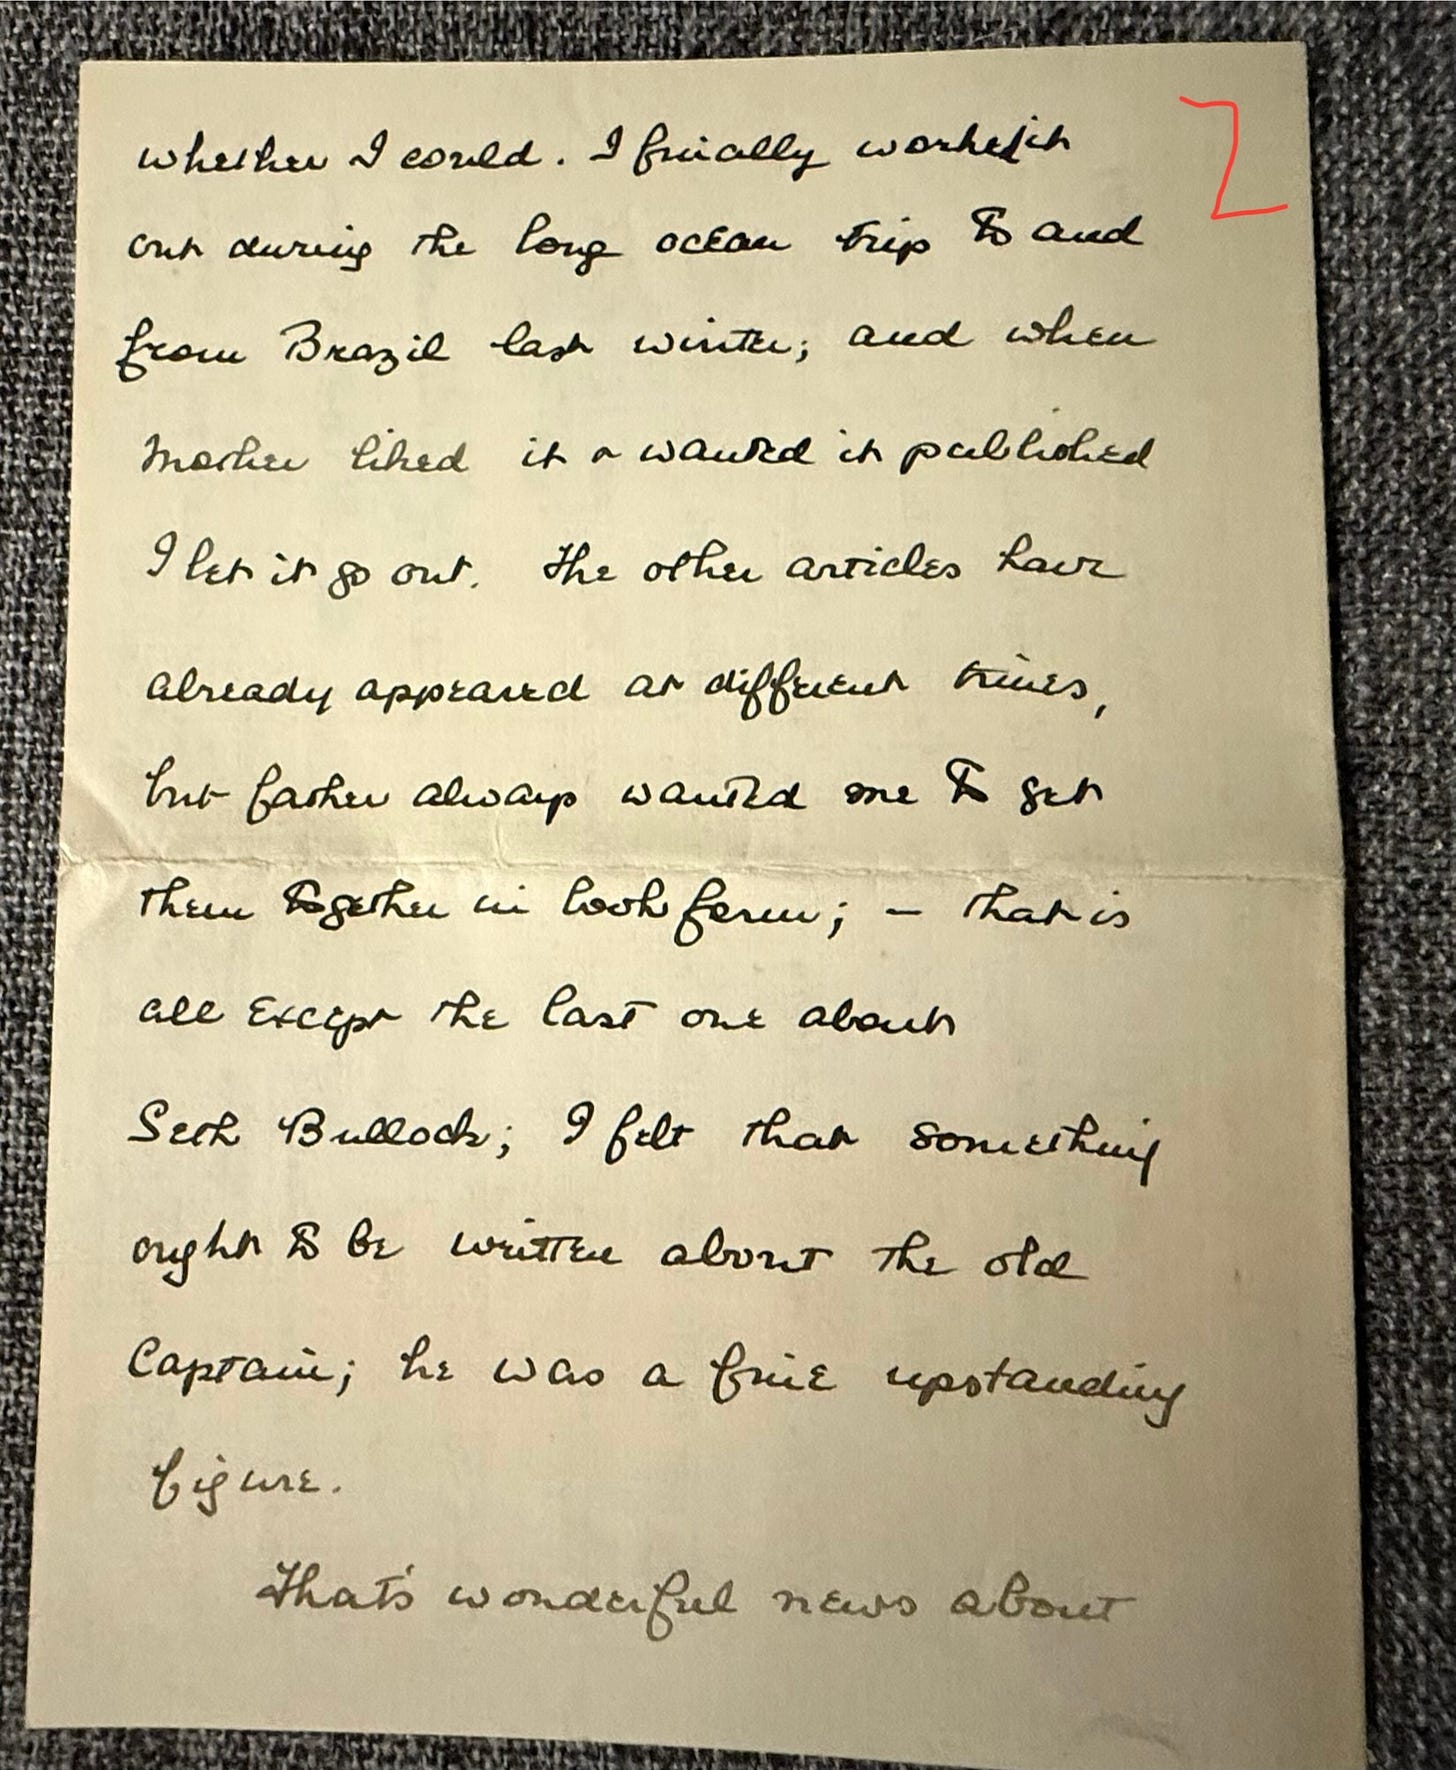 2
whether I could. I finally worked it
out during the long ocean trip to and
from Brazil last winter; and when
Mother liked it & wanted it published
I let it go out. The other articles have
already appeared at different times,
but father always wanted me to get
them together in book form; – that is
all except the last one about
Seth Bullock; I felt that something
ought to be written about the old
Captain; he was a fine upstanding
figure.
That's wonderful news about